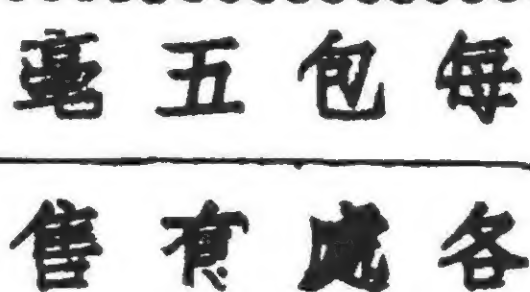 每包五毫
各處有售